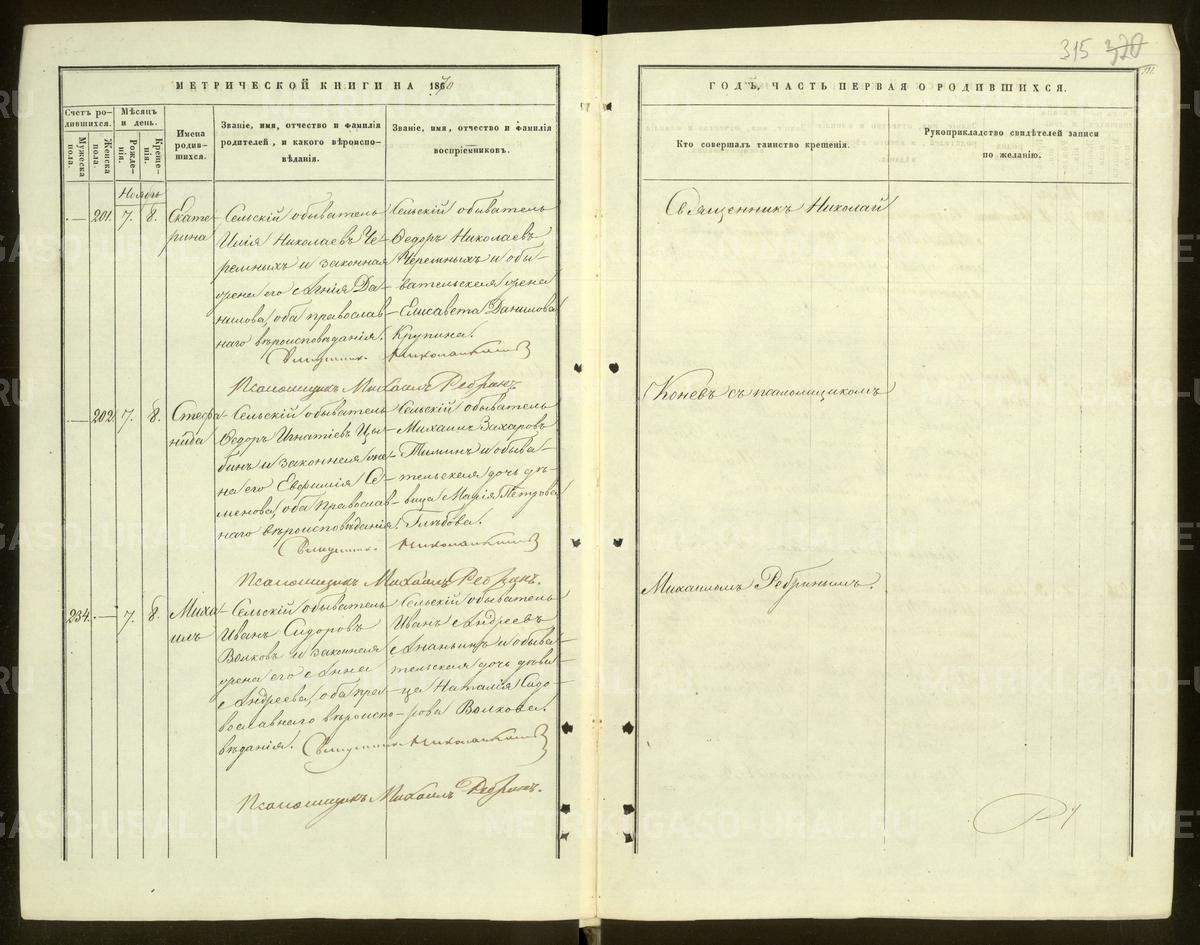 315 320
МЕТРИЧЕСКОЙ КНИГИ НА 1870
ГОДЪ, ЧАСТЬ ПЕРВАЯ О РОДИВШИХСЯ.
Счетъ родившихся.
Мужеска пола.
Женска пола.
Мѣсяцъ и день.
Рожденія.
Крещенія.
Имена родившихся.
Званіе, имя, отчество и фамилія
родителей, и какого вѣроиспо-
вѣданія.
Званіе, имя, отчество и фамилія
воспріемниковъ.
Кто совершалъ таинство крещенія.
Рукоприкладство свидѣтелей записи
по желанію.
Ноябрь
— 201. 7. 8. Екате-
рина
Сельскій обыватель
Илія Николаевъ Че-
ремныхъ и законная
жена его Агнія Да-
нилова, оба православ-
наго вѣроисповѣданія.
Сельскій обыватель
Ѳедоръ Николаевъ
Черемныхъ и обы-
вательская жена
Елисавета Данилова
Крупина.
Священникъ Николай Коневъ
Псаломщикъ Михаилъ Ребринъ
— 202. 7. 8. Стефа-
нида
Сельскій обыватель
Ѳедоръ Игнатіевъ Цы-
бинъ и законная же-
на его Евфимія Се-
менова, оба православ-
наго вѣроисповѣданія.
Сельскій обыватель
Михаилъ Захаровъ
Тиминъ и обыва-
тельская дочь дѣ-
вица Марія Петрова
Глѣбова.
Священникъ Николай Коневъ
Псаломщикъ Михаилъ Ребринъ.
234. — 7. 8. Миха-
илъ
Сельскій обыватель
Иванъ Сидоровъ
Волковъ и законная
жена его Анна
Андреева, оба пра-
вославнаго вѣроиспо-
вѣданія.
Сельскій обыватель
Иванъ Андреевъ
Ананьинъ и обыва-
тельская дочь дѣви-
ца Наталія Сидо-
рова Волкова.
Священникъ Николай Коневъ
Псаломщикъ Михаилъ Ребринъ.
Священникъ Николай
Коневъ съ псаломщикомъ
Михаиломъ Ребринымъ.
METRIKI.GASO-URAL.RU